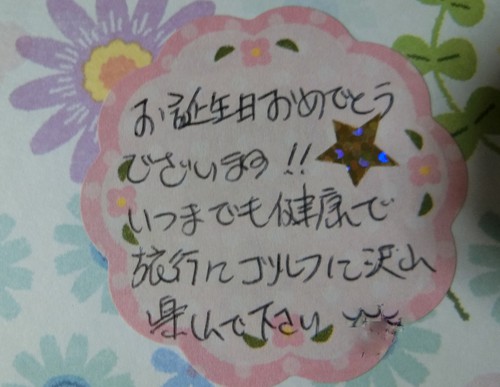 お誕生日おめでとう
ございます!!
いつまでも健康で
旅行にゴルフに沢山
楽しんで下さい